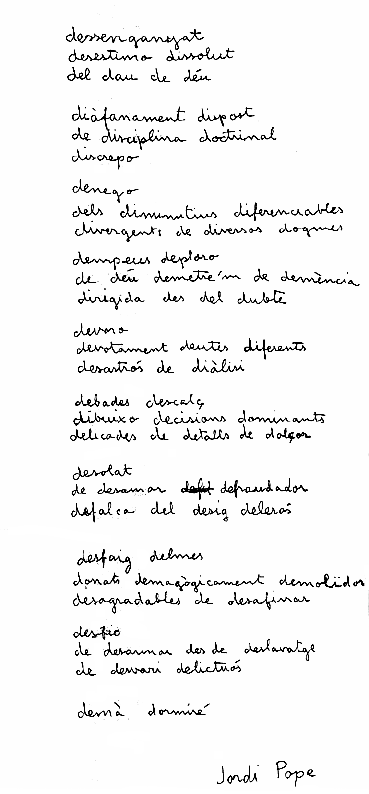 dessenganyat
desestimo dissolut
del dau de déu
diàfanament dispost
de disciplina doctrinal
discrepo
denego
dels diminutius diferenciables
divergents de diversos dogmes
dempeus deploro
de déu demetre'm de demència
dirigida des del dubte
devoro
devotament deutes diferents
desastrós de diàlisi
debades descalç
dibuixo decisions dominants
delicades de detalls de dolçor
desolat
de desamor defraudador
defalca del desig delerós
desfaig delmes
donats demagògicament demolidors
desagradables de desafinar
desfici
de desarmar des de deslavatge
de desvari delictuós
demà dormiré
Jordi Pope